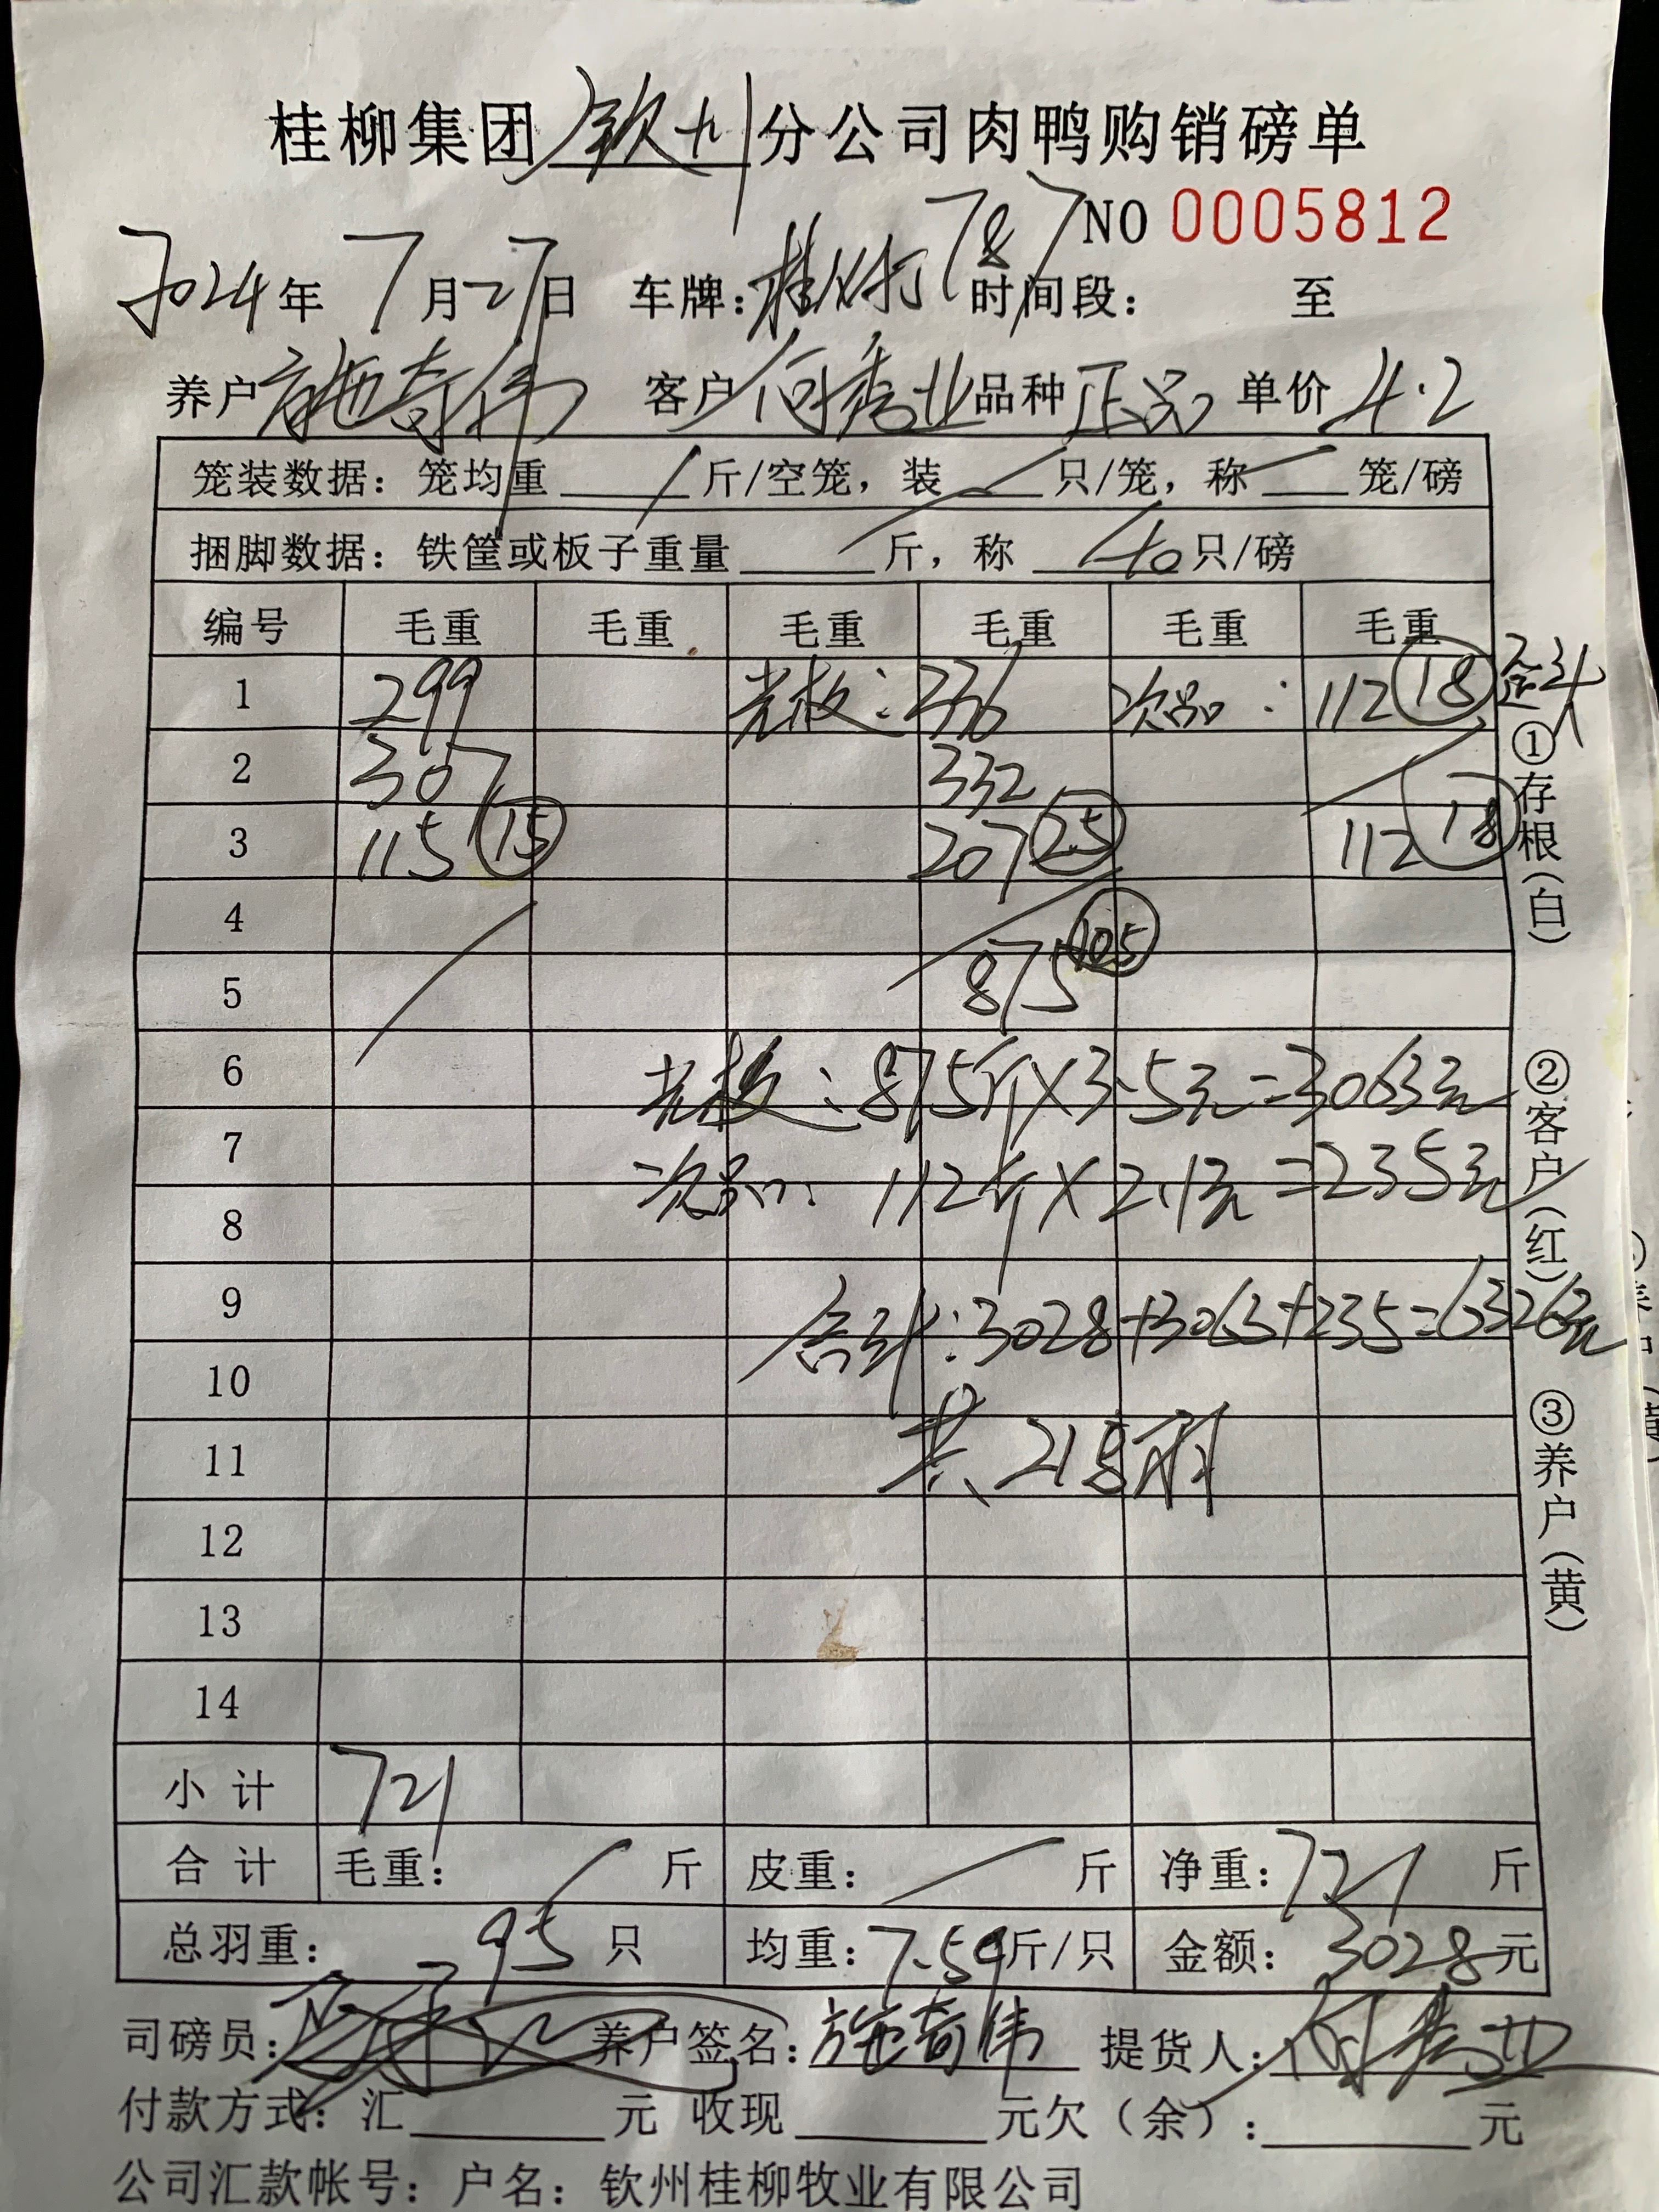 桂柳集团 钦州 分公司肉鸭购销磅单
NO 0005812
2024年 7月27日 车牌: 787 时间段: 至
养户 施奇伟 客户 何秀业 品种 正品 单价 4.2
笼装数据: 笼均重 / 斤/空笼, 装 / 只/笼, 称 / 笼/磅
捆脚数据: 铁筐或板子重量 / 斤, 称 40 只/磅
编号 毛重 毛重 毛重 毛重 毛重 毛重
1 299 光板: 336 次品: 112 (18)
2 307 332
3 115 (15) 207 (25) 112 (18)
4
875 (105)
5
6 光板: 875斤×3.5元=3063元
7 次品: 112斤×2.1元=235元
8
9 合计: 3028+3063+235=6326元
10
11 共218羽
12
13
14
小计 721
合计 毛重: / 斤 皮重: / 斤 净重: 721 斤
总羽重: 95 只 均重: 7.59 斤/只 金额: 3028 元
司磅员: 养户签名: 施奇伟 提货人: 何秀业
付款方式: 汇 元 收现 元欠(余): 元
公司汇款帐号: 户名: 钦州桂柳牧业有限公司
①存根(白)
②客户(红)
③养户(黄)